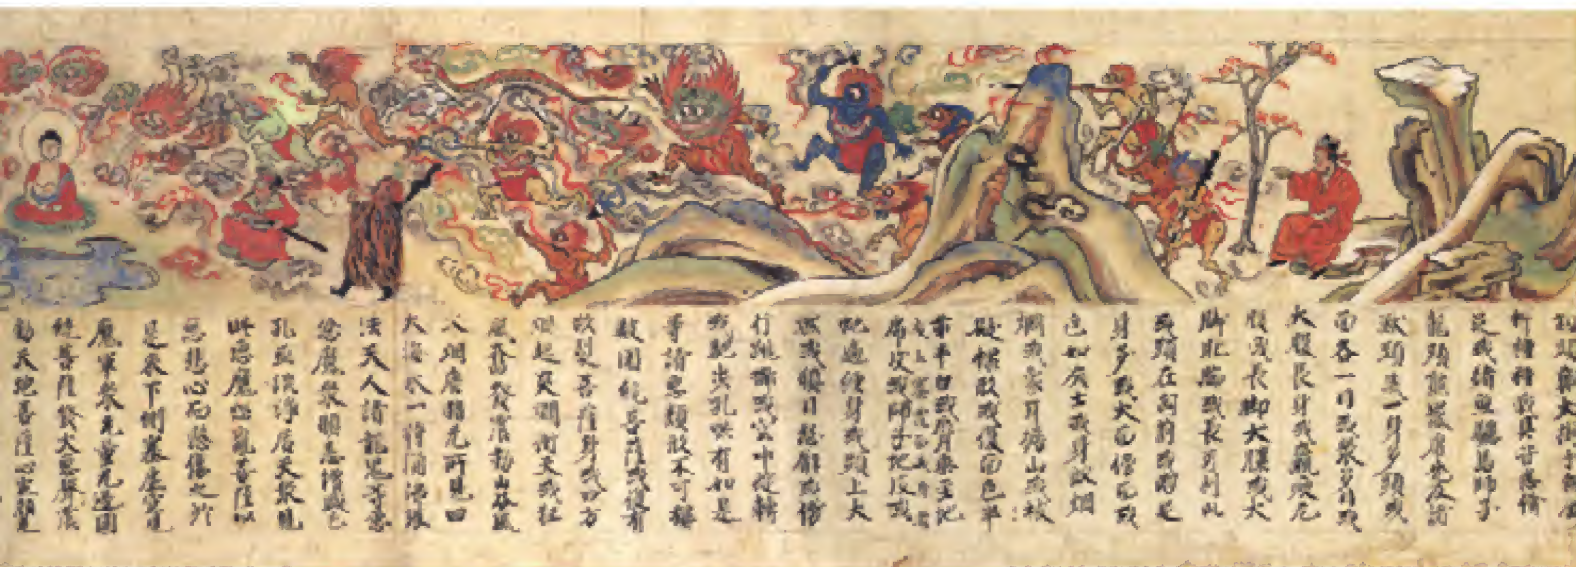 杵種種戟具皆悉備
足或猪魚驢馬師子
龍頭熊羆虎兕及諸
獸頭或一身多頭或
面各一目或衆多目或
大腹長身或羸瘦无
腹或長脚大膝或大
脚肥腨或長牙利爪
或頭在胸前或兩足
身多或大面傍面或
色如灰土或身放烟
或象身擔山或被
髮裸形或復面色半
赤半白或脣垂至地
或上褰覆面或身著
虎皮或師子虵皮或
虵遍纏身或頭上火
燃或瞋目怒臂或傍
行跳擲或空中旋轉
或馳步吼喚有如是
等諸惡類形不可稱
數圍繞菩薩或復有
欲裂菩薩身或四方
烟起炎焰衝天或狂
風奮發震動山谷風
火烟塵暗无所見四
大海水一時涌沸護
法天人諸龍鬼等悉
忿魔衆瞋恚增盛毛
孔血流淨居天衆見
此惡魔惱亂菩薩以
慈悲心而愍傷之於
是來下側塞虛空見
魔軍衆无量无邊圍
繞菩薩發大惡聲震
動天地菩薩心定顏